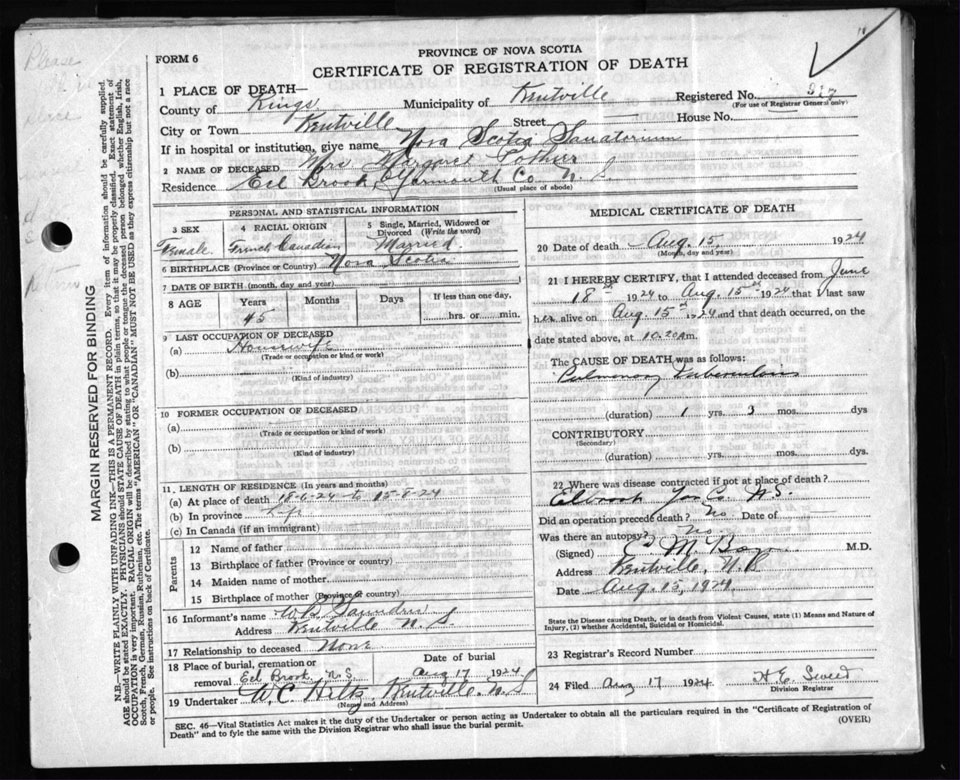 PROVINCE OF NOVA SCOTIA
FORM 6
CERTIFICATE OF REGISTRATION OF DEATH
1 PLACE OF DEATH—
County of Kings Municipality of Kentville Registered No.
(For use of Registrar General only)
City or Town Kentville Street House No.
If in hospital or institution, give name Nova Scotia Sanatorium
2 NAME OF DECEASED Mrs Margaret Pothier
Residence Eel Brook, Yarmouth Co N. S.
(Usual place of abode)
MARGIN RESERVED FOR BINDING
N.B.—WRITE PLAINLY WITH UNFADING INK—THIS IS A PERMANENT RECORD. Every item of information should be carefully supplied.
AGE should be stated EXACTLY. PHYSICIANS should STATE CAUSE OF DEATH in plain terms, so that it may be properly classified. Exact statement of
OCCUPATION is very important. RACIAL ORIGIN will be described by stating to what people or tongue the deceased person belonged whether English, Irish,
Scotch, French, German, Russian, Ruthenian, etc. The terms "AMERICAN" OR "CANADIAN" MUST NOT BE USED as they express citizenship but not a race
or people. See instructions on back of Certificate.
PERSONAL AND STATISTICAL INFORMATION
3 SEX 4 RACIAL ORIGIN 5 Single, Married, Widowed or
Divorced (Write the word)
Female French Canadian Married
6 BIRTHPLACE (Province or Country) Nova Scotia
7 DATE OF BIRTH (month, day and year)
8 AGE Years Months Days If less than one day,
45 hrs. or min.
9 LAST OCCUPATION OF DECEASED
(a) Housewife
(Trade or occupation or kind of work)
(b)
(Kind of industry)
10 FORMER OCCUPATION OF DECEASED
(a)
(Trade or occupation or kind of work)
(b)
(Kind of industry)
11. LENGTH OF RESIDENCE (In years and months)
(a) At place of death 18-6-24 to 15-8-24
(b) In province Life
(c) In Canada (if an immigrant)
Parents
12 Name of father
13 Birthplace of father (Province or country)
14 Maiden name of mother
15 Birthplace of mother (Province or country)
16 Informant's name W B Saunders
Address Kentville N. S.
17 Relationship to deceased None
18 Place of burial, cremation or
removal Eel Brook N S
Date of burial
Aug 17 1924
19 Undertaker W. C. Hiltz, Kentville, N S
(Name and Address)
MEDICAL CERTIFICATE OF DEATH
20 Date of death Aug. 15, 1924
(Month, day and year)
21 I HEREBY CERTIFY, that I attended deceased from June
18th 1924 to Aug. 15th 1924 that I last saw
her alive on Aug. 15th 1924 and that death occurred, on the
date stated above, at 10.20 am.
The CAUSE OF DEATH was as follows:
Pulmonary Tuberculosis
(duration) 1 yrs. 3 mos. dys
CONTRIBUTORY
(Secondary)
(duration) yrs. mos. dys.
22 Where was disease contracted if not at place of death?
Elbrook Yar Co. N.S.
Did an operation precede death? No Date of
Was there an autopsy? No
(Signed) M.D.
Address Kentville,
Date Aug. 15, 1924
State the Disease causing Death, or in death from Violent Causes, state (1) Means and Nature of
Injury, (2) whether Accidental, Suicidal or Homicidal.
23 Registrar's Record Number
24 Filed Aug 17 1924
Division Registrar
SEC. 46—Vital Statistics Act makes it the duty of the Undertaker or person acting as Undertaker to obtain all the particulars required in the "Certificate of Registration of
Death" and to fyle the same with the Division Registrar who shall issue the burial permit.
(OVER)